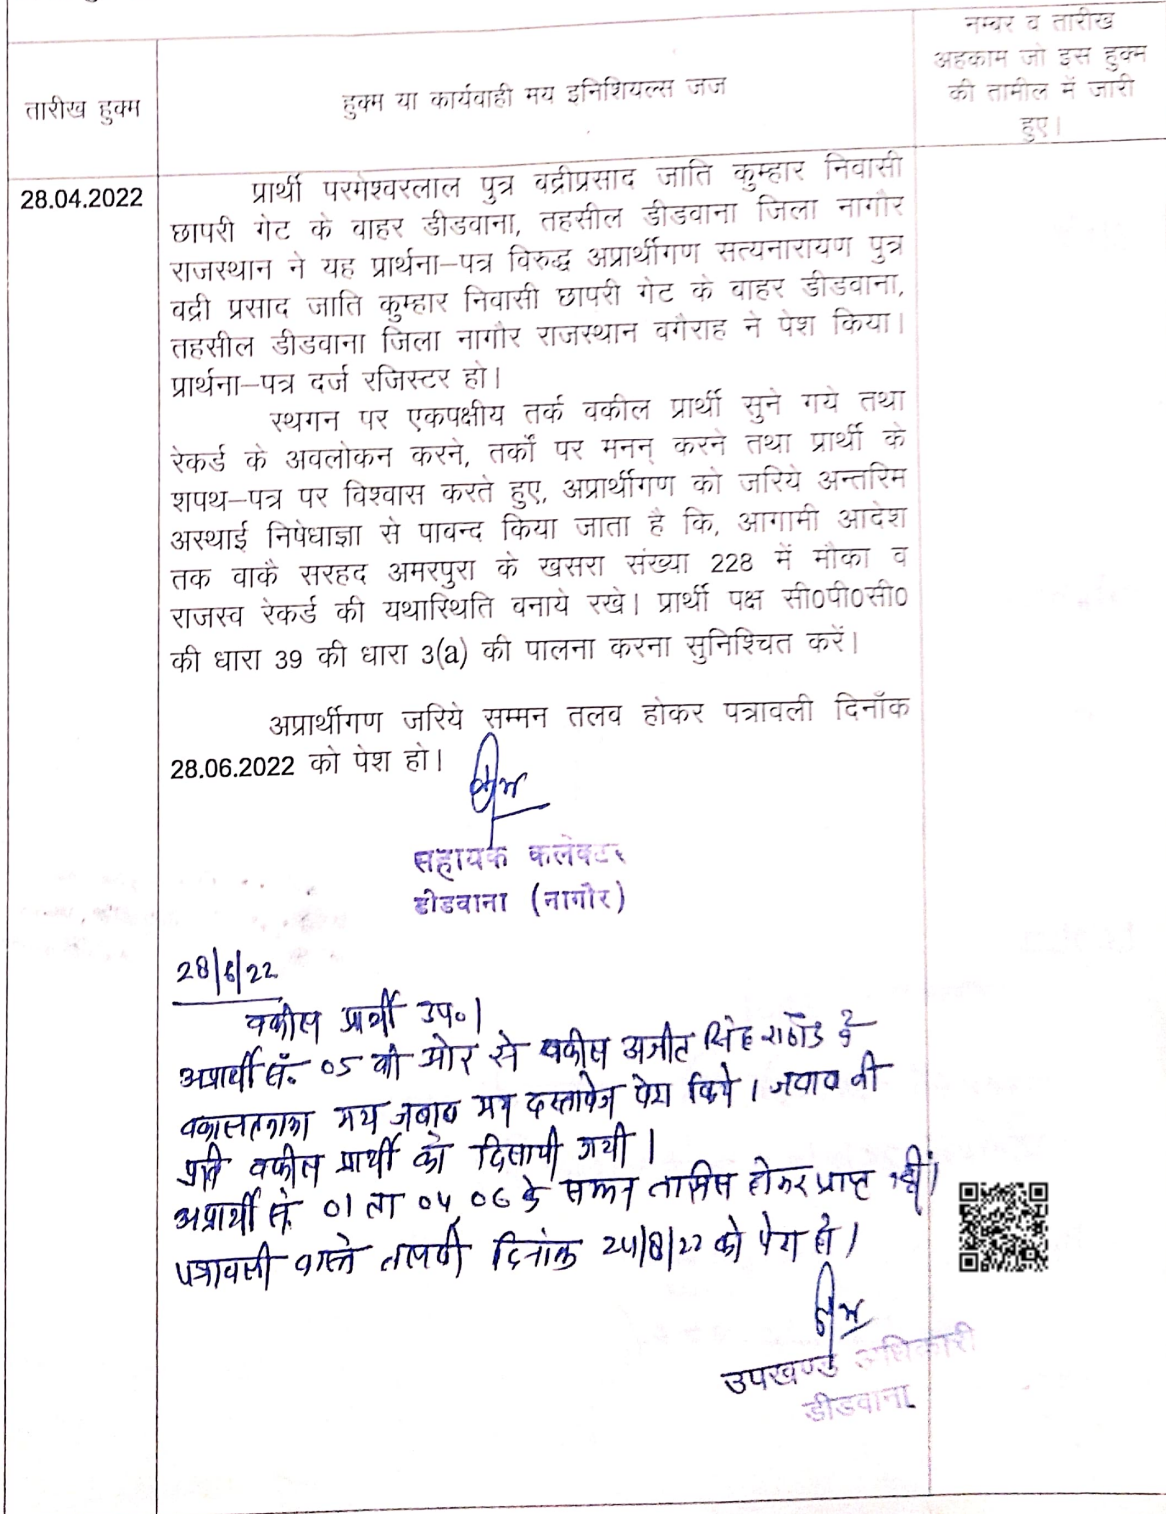 तारीख हुक्म
हुक्म या कार्यवाही मय इनिशियल्स जज
नम्बर व तारीख
अहकाम जो इस हुक्म
की तामील में जारी
हुए।
28.04.2022
प्रार्थी परमेश्वरलाल पुत्र बद्रीप्रसाद जाति कुम्हार निवासी
छापरी गेट के बाहर डीडवाना, तहसील डीडवाना जिला नागौर
राजस्थान ने यह प्रार्थना–पत्र विरुद्ध अप्रार्थीगण सत्यनारायण पुत्र
बद्री प्रसाद जाति कुम्हार निवासी छापरी गेट के बाहर डीडवाना,
तहसील डीडवाना जिला नागौर राजस्थान वगैराह ने पेश किया।
प्रार्थना–पत्र दर्ज रजिस्टर हो।
स्थगन पर एकपक्षीय तर्क वकील प्रार्थी सुने गये तथा
रेकर्ड के अवलोकन करने, तर्कों पर मनन् करने तथा प्रार्थी के
शपथ–पत्र पर विश्वास करते हुए, अप्रार्थीगण को जरिये अन्तरिम
अस्थाई निषेधाज्ञा से पाबन्द किया जाता है कि, आगामी आदेश
तक वाकै सरहद अमरपुरा के खसरा संख्या 228 में मौका व
राजस्व रेकर्ड की यथास्थिति बनाये रखे। प्रार्थी पक्ष सी0पी0सी0
की धारा 39 की धारा 3(a) की पालना करना सुनिश्चित करें।
अप्रार्थीगण जरिये सम्मन तलब होकर पत्रावली दिनॉंक
28.06.2022 को पेश हो।
सहायक कलेक्टर
डीडवाना (नागौर)
28/6/22
वकील प्रार्थी उप०।
अप्रार्थी सं. 05 की ओर से वकील अजीत सिंह राठौड़ ने
वकालतनामा मय जवाब मय दस्तावेज पेश किये। जवाब की
प्रति वकील प्रार्थी को दिलायी गयी।
अप्रार्थी सं. 01 ता 04, 06 के सम्मन तामिल होकर प्राप्त नहीं।
पत्रावली वास्ते तलबी दिनांक 24/8/22 को पेश हो।
उपखण्ड अधिकारी
डीडवाना